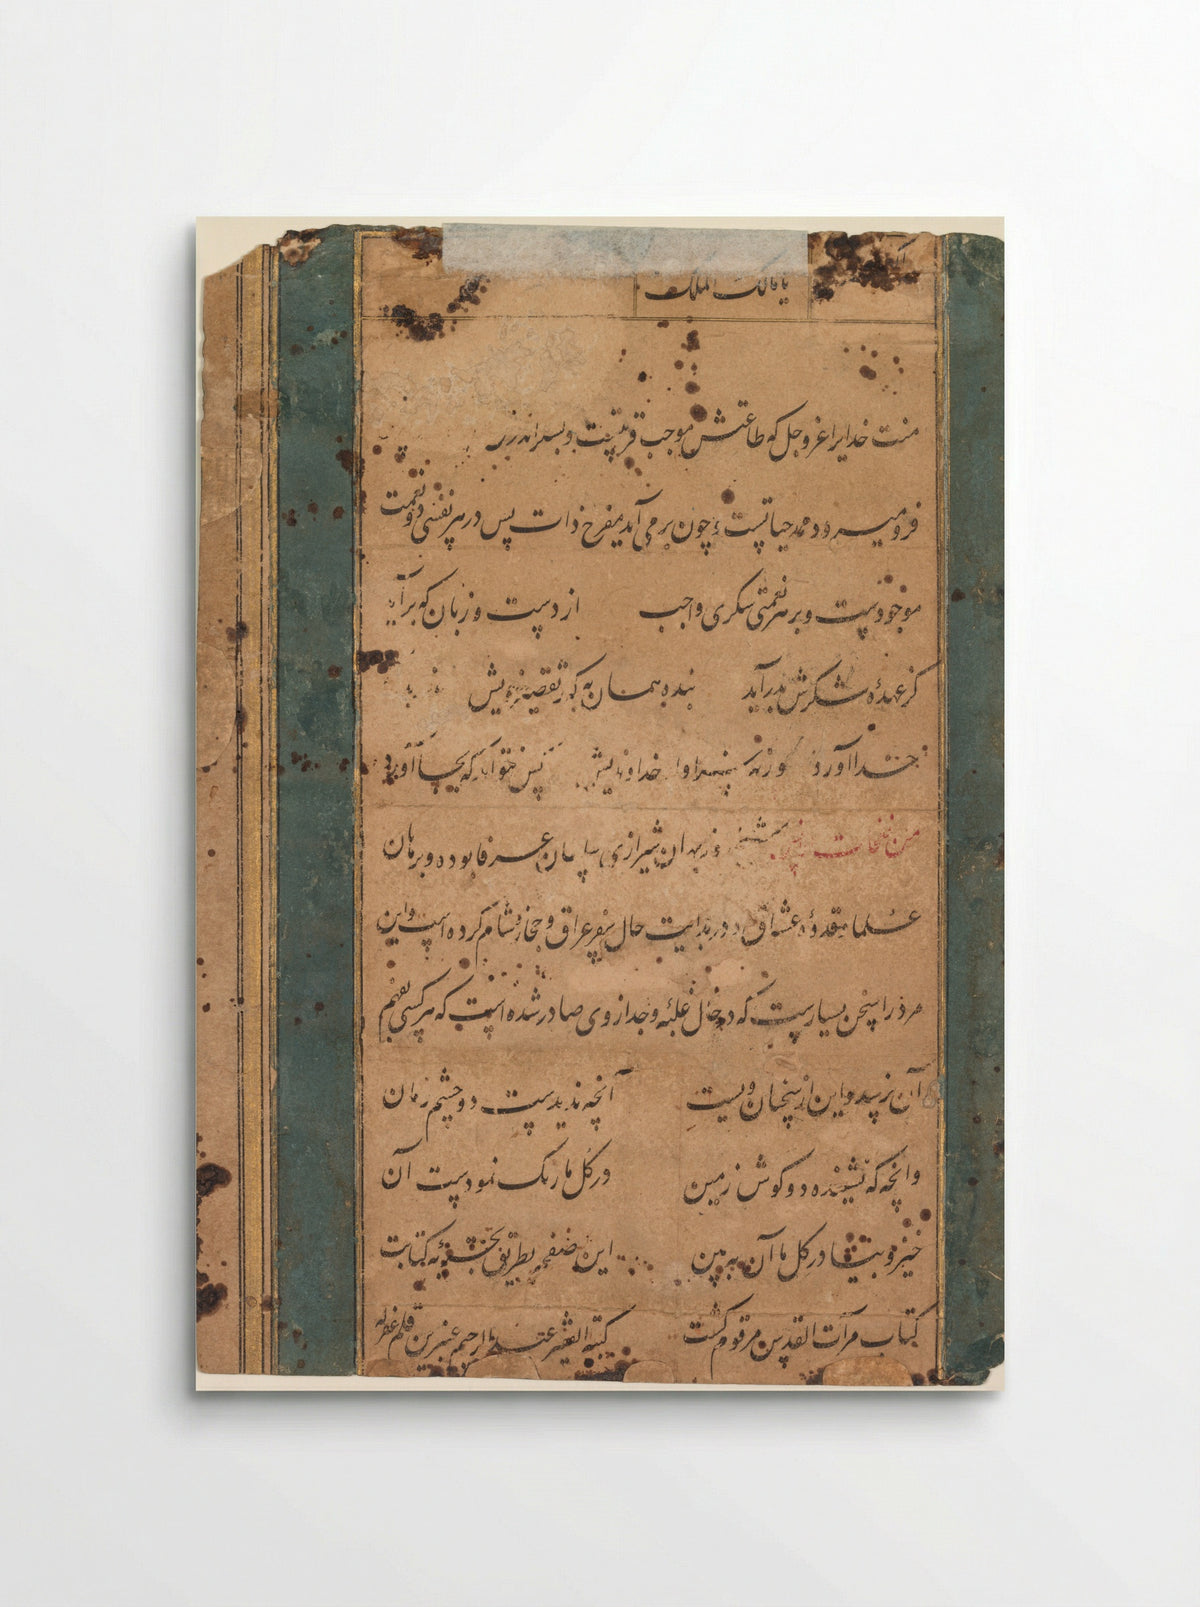 یا مالک الملک
منت خدایرا عز وجل که طاعتش موجب قربتست و بشکراندرش
فرو میرود ممد حیاتست و چون بر می آید مفرح ذات پس در هر نفسی دو نعمت
موجودست و بر هر نعمتی شکری واجب از دست و زبان که برآید
کز عهدهٔ شکرش بدرآید بنده همان به که ز تقصیر خویش
خدا آورد ورنه سزاوار خداوندیش کس نتواند که بجا آورد
من نفحات شیخ روزبهان شیرازی سلطان عرفا بوده و برهان
علما و قدوهٔ عشاق و در بدایت حال سفر عراق و حجاز و شام کرده است و این
مر ذرا سخن بسیارست که در حال غلبه و جد از وی صادر شده است که هر کسی بفهم
آن نرسد و این از سخنان ویست آنچه ندیدست دو چشم زمان
وانچه که نشنیده دو گوش زمین در گل ما رنگ نمودست آن
خیز و بیا در گل ما آن ببین این صفحه بطریق به کتابت
کتاب مرآت القدس مرقوم گشت کتبه الفقیر عبد الرحیم عنبرین قلم غفر له